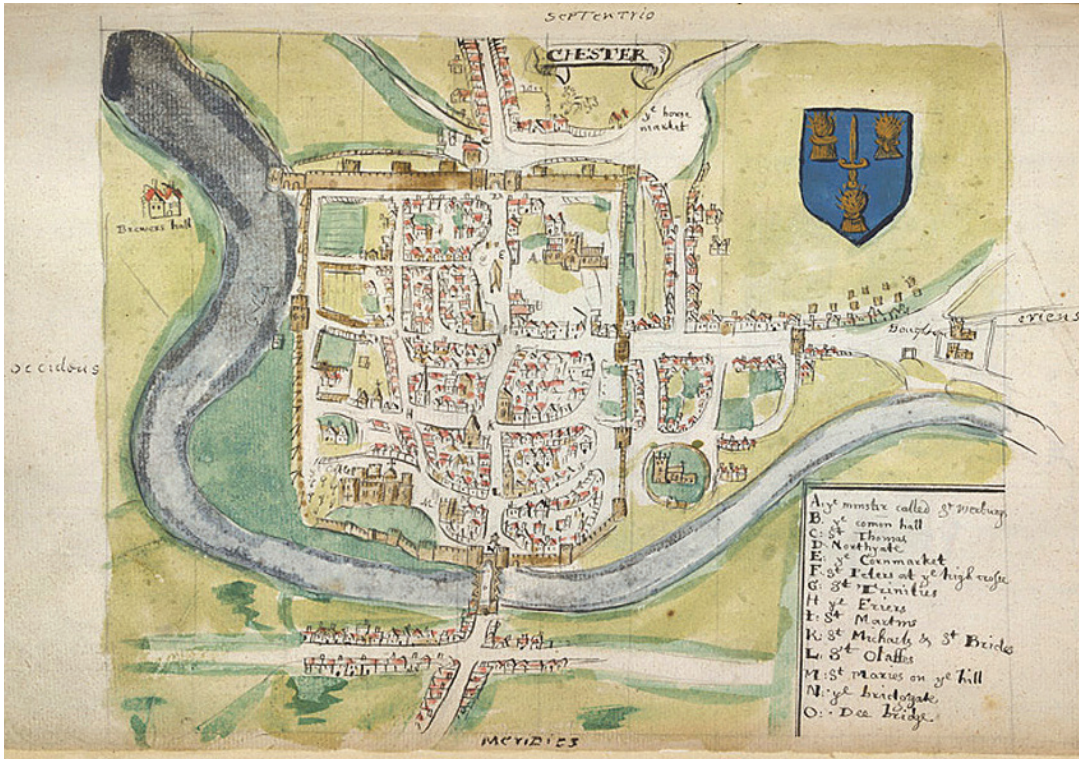 SEPTENTRIO
CHESTER
yᵉ horse
market
Brewers hall
occidens
oriens
A
E
D
K
M
A: yᵉ minster called Sᵗ Werburgs
B. yᵉ comon hall
C: Sᵗ Thomas
D: Northgate
E: yᵉ Cornmarket
F: Sᵗ Peters at yᵉ high crosse
G: Sᵗ Trinities
H yᵉ Friers
I: Sᵗ Martins
K: Sᵗ Michaels & Sᵗ Brides
L. Sᵗ Olaffes
M: Sᵗ Maries on yᵉ hill
N: yᵉ bridgegate
O: Dee bridge
MERIDIES